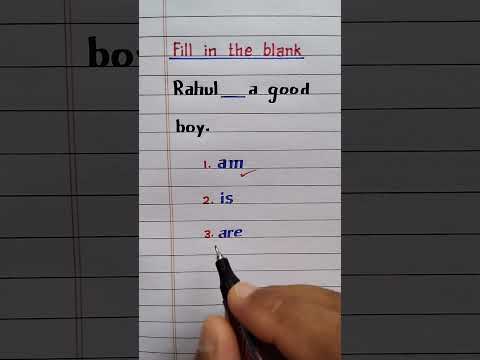 Fill in the blank
Rahul __ a good
boy.
1. am
2. is
3. are